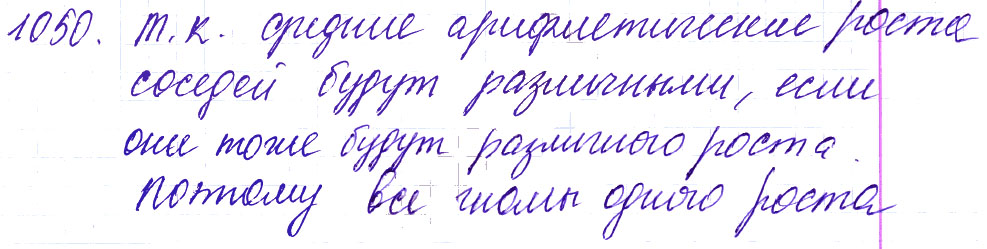 1050. т.к. средние арифметические роста
соседей будут различными, если
они тоже будут различного роста.
Поэтому все гномы одного роста